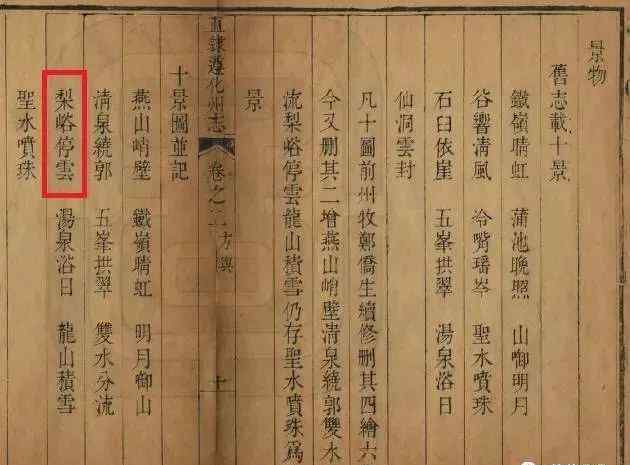 景物
舊志載十景
鐵嶺晴虹 蒲池晚照 山啣明月
谷響清風 冷嘴瑶岑 聖水噴珠
石臼依崖 五峯拱翠 湯泉浴日
仙洞雲封
凡十圖前州牧鄭僑生續修删其四繪六
今又删其二增燕山峭壁清泉繞郭雙水分
流梨峪停雲龍山積雪仍存聖水噴珠爲
景
直隷遵化州志 卷之二 方輿 十
十景圖並記
燕山峭壁 鐵嶺晴虹 明月啣山
清泉繞郭 五峯拱翠 雙水分流
梨峪停雲 湯泉浴日 龍山積雪
聖水噴珠